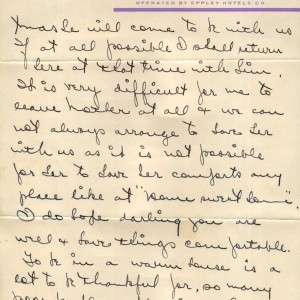 OPERATED BY EPPLEY HOTELS CO.
will come to be with us
If at all possible I shall return
here at that time with him.
It is very difficult for me to
leave Mother at all & we can
not always arrange to have her
with us as it is not possible
for her to have her comforts any
place like at "home sweet home".
I do hope darling you are
well & have things comfortable.
To be in a warm house is a
lot to be thankful for, so many